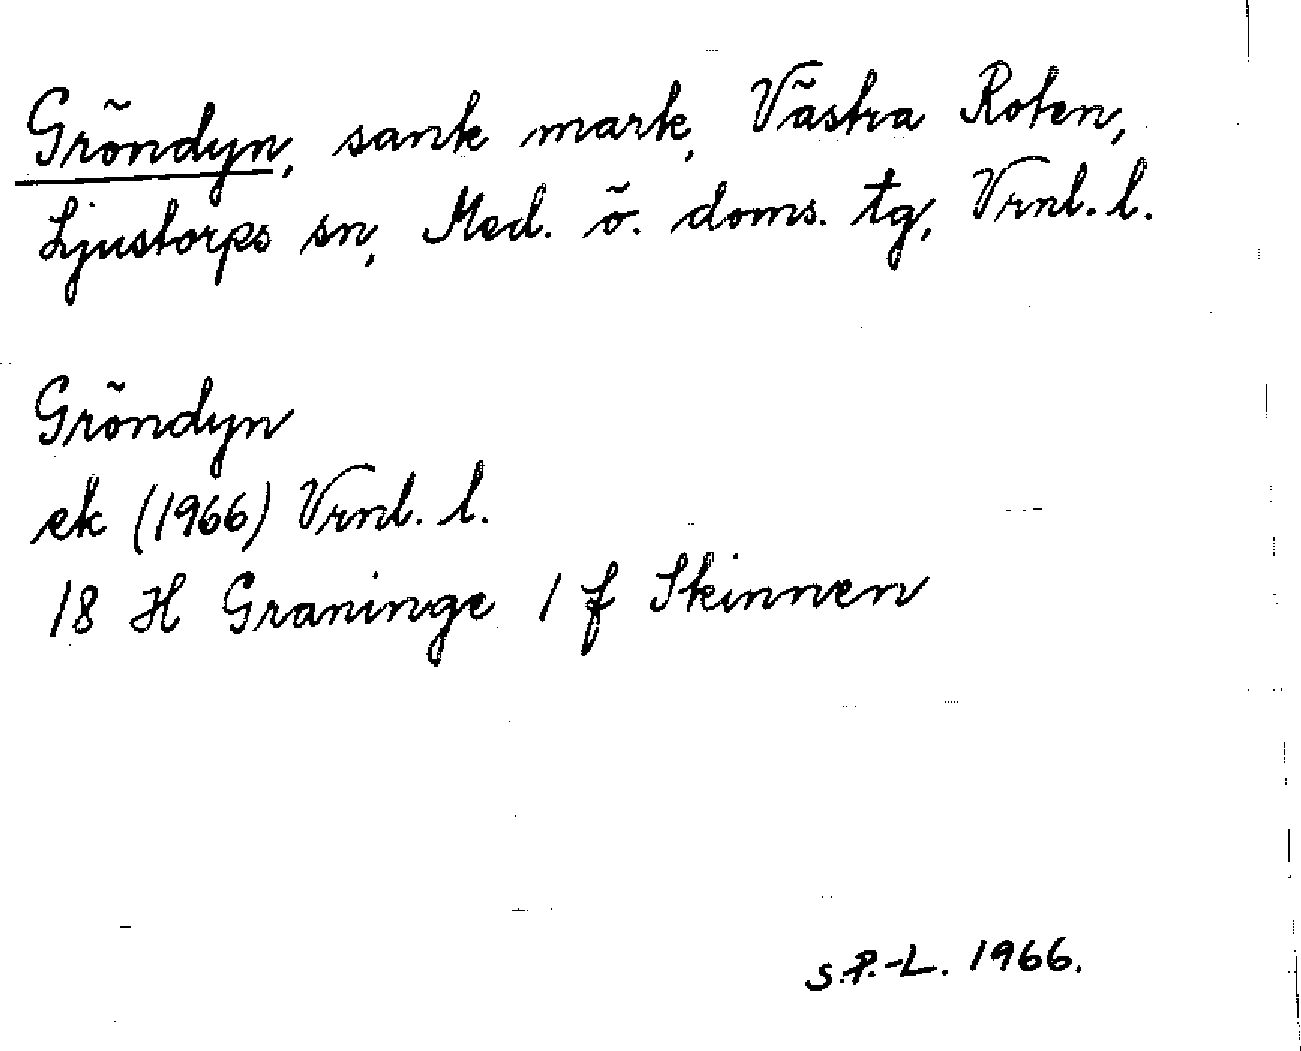 Gröndyn, sank mark, Västra Roten,
Ljustorps sn, Med. ö. doms. tg, Vrnl. l.
Gröndyn
ek (1966) Vrnl. l.
18 H Graninge 1 f Skinnen
S.P.-L. 1966.